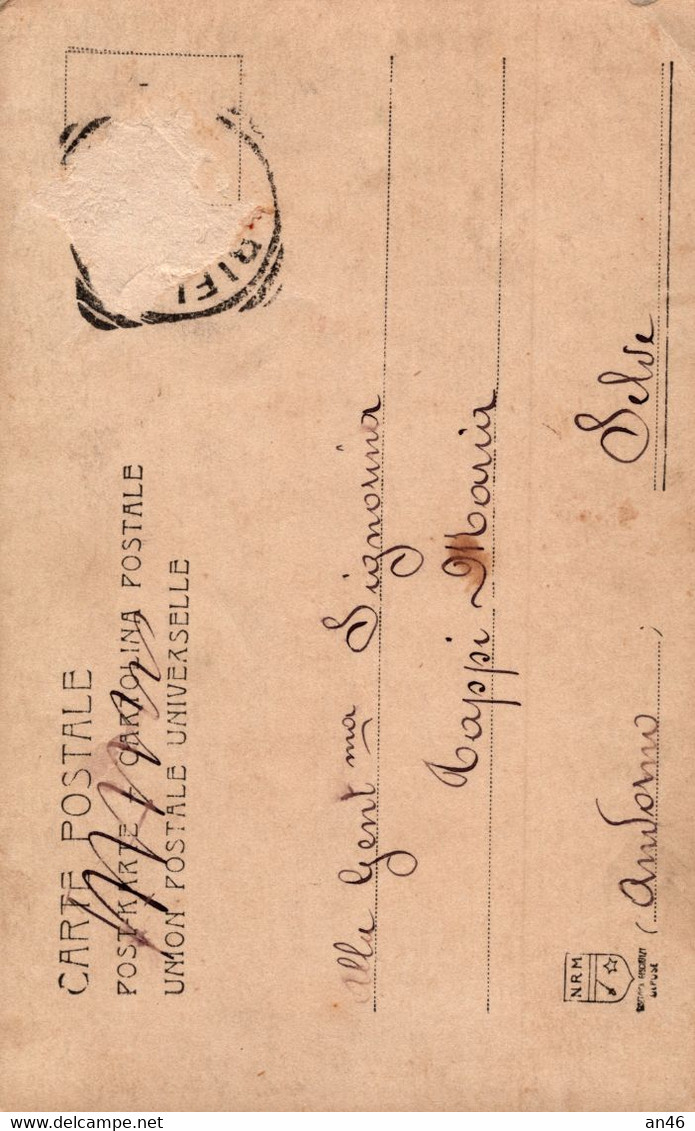 CARTE POSTALE
POST-KARTE - CARTOLINA POSTALE
UNION POSTALE UNIVERSELLE
Alla Gent ma Signorina
Rappi Maria
Selve
(Andorno)
N.R.M.
DEPOSE
an46